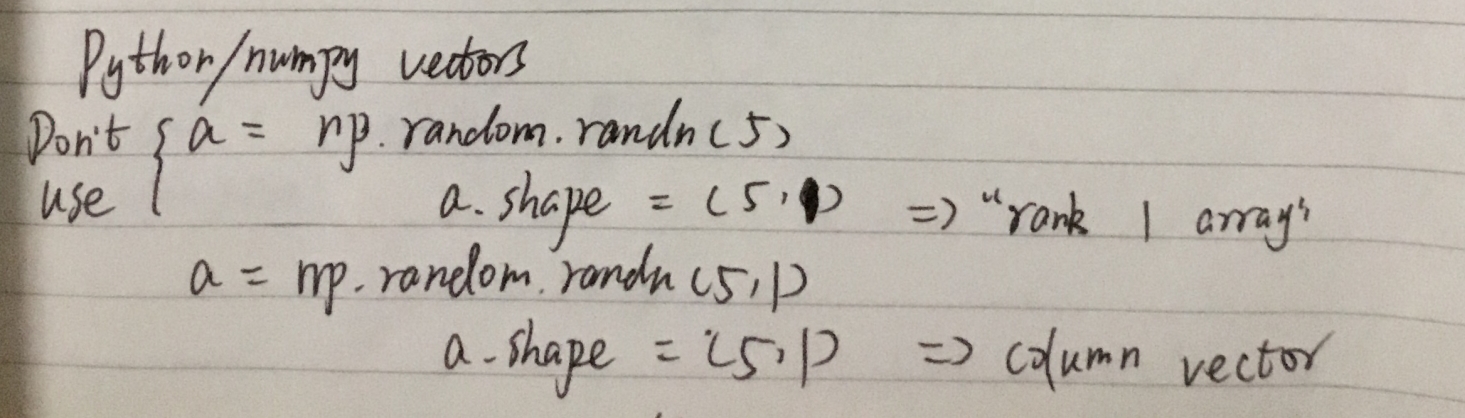 Python/numpy vectors
Don't use { a = np.random.randn(5)
a.shape = (5,) => "rank 1 array"
a = np.random.randn(5,1)
a.shape = (5,1) => column vector